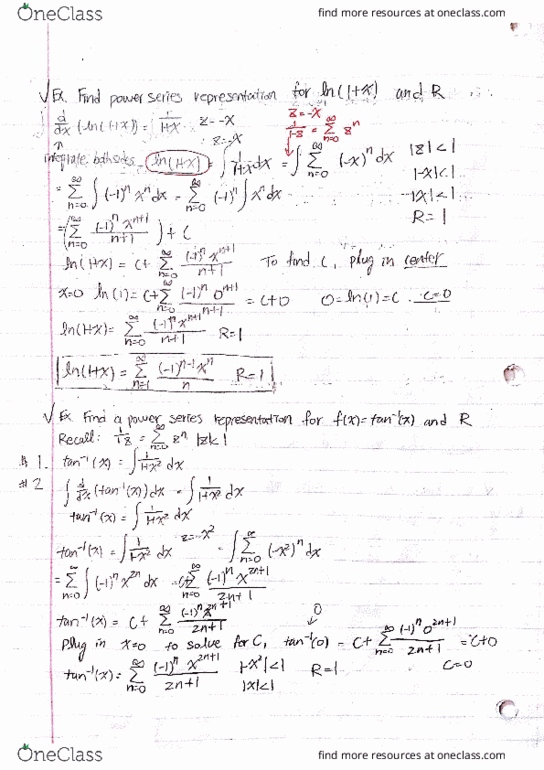 OneClass
find more resources at oneclass.com
√Ex. Find power series representation for ln(1+x) and R
d/dx (ln(1+x)) = 1/(1+x) z=-x
z=-x
1/(1-z) = ∞Σn=0 z^n
integrate both sides ln(1+x) = ∫ 1/(1+x) dx = ∫ ∞Σn=0 (-x)^n dx |z|<1
|-x|<1
= ∞Σn=0 ∫ (-1)^n x^n dx = ∞Σn=0 (-1)^n ∫ x^n dx |x|<1
R=1
= (∞Σn=0 (-1)^n x^(n+1)/(n+1)) + C
ln(1+x) = C + ∞Σn=0 (-1)^n x^(n+1)/(n+1) To find C, plug in center
x=0 ln(1) = C + ∞Σn=0 (-1)^n 0^(n+1)/(n+1) = C+0 0=ln(1)=C C=0
ln(1+x) = ∞Σn=0 (-1)^n x^(n+1)/(n+1) R=1
ln(1+x) = ∞Σn=1 (-1)^(n-1) x^n/n R=1
√Ex. Find a power series representation for f(x)=tan⁻¹(x) and R
Recall: 1/(1-z) = ∞Σn=0 z^n |z|<1
#1. tan⁻¹(x) = ∫ 1/(1+x²) dx
#2 ∫ d/dx (tan⁻¹(x)) dx = ∫ 1/(1+x²) dx
tan⁻¹(x) = ∫ 1/(1+x²) dx
tan⁻¹(x) = ∫ 1/(1+x²) dx z=-x² = ∫ ∞Σn=0 (-x²)^n dx
= ∞Σn=0 ∫ (-1)^n x^(2n) dx = C+ ∞Σn=0 (-1)^n x^(2n+1)/(2n+1)
tan⁻¹(x) = C + ∞Σn=0 (-1)^n x^(2n+1)/(2n+1) 0
Plug in x=0 to solve for C, tan⁻¹(0) = C + ∞Σn=0 (-1)^n 0^(2n+1)/(2n+1) = C+0
C=0
tan⁻¹(x) = ∞Σn=0 (-1)^n x^(2n+1)/(2n+1) |-x²|<1 R=1
|x|<1
OneClass
find more resources at oneclass.com